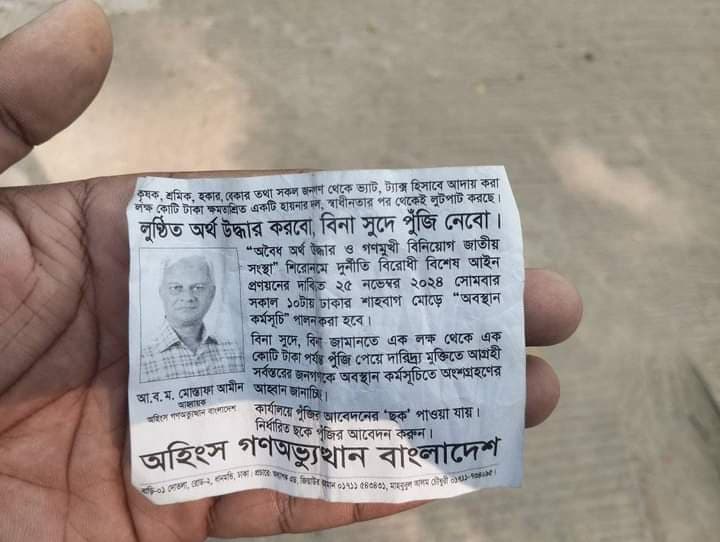 কৃষক, শ্রমিক, হকার, বেকার তথা সকল জনগণ থেকে ভ্যাট, ট্যাক্স হিসাবে আদায় করা
লক্ষ কোটি টাকা ক্ষমতাশ্রিত একটি হায়নার দল, স্বাধীনতার পর থেকেই লুটপাট করছে।
লুণ্ঠিত অর্থ উদ্ধার করবো, বিনা সুদে পুঁজি নেবো।
"অবৈধ অর্থ উদ্ধার ও গণমুখী বিনিয়োগ জাতীয়
সংস্থা" শিরোনামে দুর্নীতি বিরোধী বিশেষ আইন
প্রণয়নের দাবিত ২৫ নভেম্বর ২০২৪ সোমবার
সকাল ১০টায় ঢাকার শাহবাগ মোড়ে "অবস্থান
কর্মসূচি" পালন করা হবে।
বিনা সুদে, বিনা জামানতে এক লক্ষ থেকে এক
কোটি টাকা পর্যন্ত পুঁজি পেয়ে দারিদ্র্য মুক্তিতে আগ্রহী
সর্বস্তরের জনগণকে অবস্থান কর্মসূচিতে অংশগ্রহণের
আহ্বান জানাচ্ছি।
কার্যালয়ে পুঁজির আবেদনের 'ছক' পাওয়া যায়।
নির্ধারিত ছকে পুঁজির আবেদন করুন।
আ.ব.ম. মোস্তাফা আমীন
আহ্বায়ক
অহিংস গণঅভ্যুত্থান বাংলাদেশ
অহিংস গণঅভ্যুত্থান বাংলাদেশ
বাড়ি-০১ দোতলা, রোড-২, ধানমন্ডি, ঢাকা। প্রচারে: জিয়াউর রহমান ০১৭১১ ৫৪৩৪৩১, মাহবুবুল আলম চৌধুরী